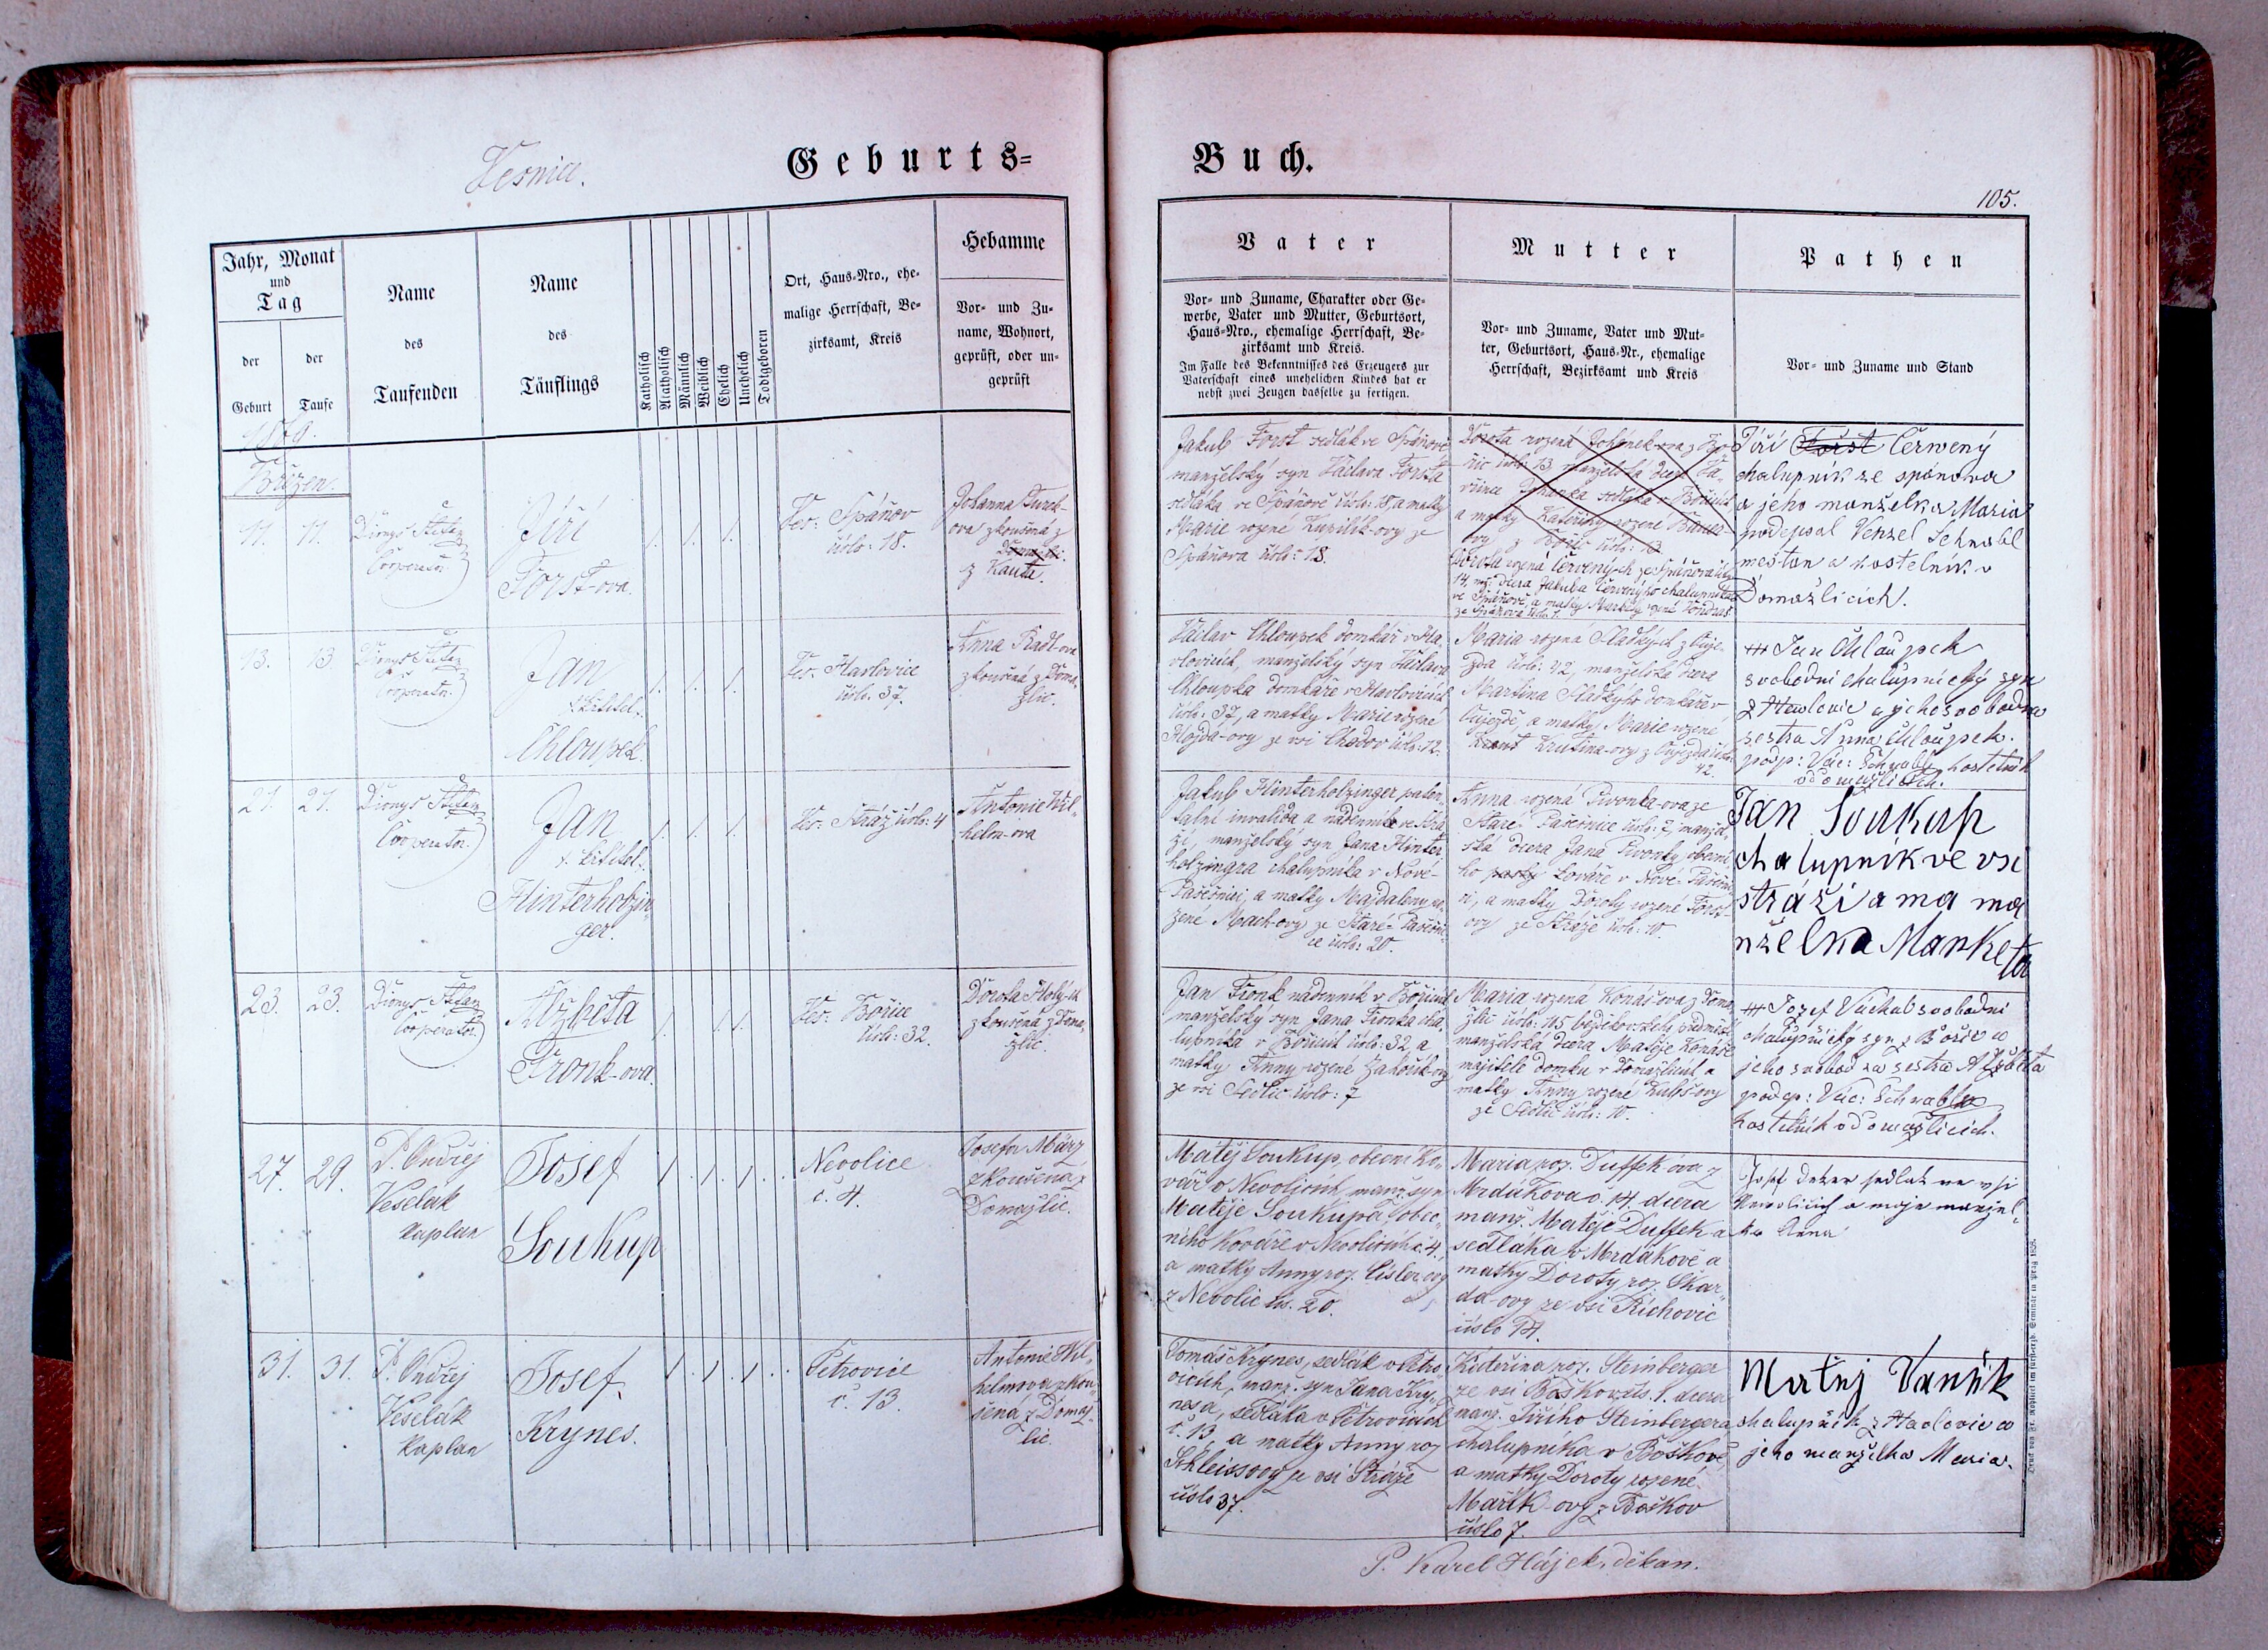 Vesnice.
Geburts-
Buch.
105.
Jahr, Monat
und
Tag
der
Geburt
der
Taufe
Name
des
Taufenden
Name
des
Täuflings
Katholisch
Akatholisch
Männlich
Weiblich
Ehelich
Unehelich
Todtgeboren
Ort, Haus-Nro., ehe-
malige Herrschaft, Be-
zirksamt, Kreis
Hebamme
Vor- und Zu-
name, Wohnort,
geprüft, oder un-
geprüft
Vater
Vor- und Zuname, Charakter oder Ge-
werbe, Vater und Mutter, Geburtsort,
Haus-Nro., ehemalige Herrschaft, Be-
zirksamt und Kreis.
Im Falle des Bekenntnisses des Erzeugers zur
Vaterschaft eines unehelichen Kindes hat er
nebst zwei Zeugen dasselbe zu fertigen.
Mutter
Vor- und Zuname, Vater und Mut-
ter, Geburtsort, Haus-Nr., ehemalige
Herrschaft, Bezirksamt und Kreis
Pathen
Vor- und Zuname und Stand
1869.
Březen.
11. 11.
Dionys Štefan
Cooperator.
Jiří
Forst-ova
Ves: Spáňov
číslo: 18.
Johanna Turek-
ova zkoušená z
z Kaute.
Jakub Forst sedlák ve Spáňově
manželský syn Václava Forsta
sedláka ve Spáňově číslo: 18, a matky
Marie rozené Kupilík-ovy ze
Spáňova číslo: 18.
Dorota rozená Johánek-ova z Bo-
řic číslo 13 manželská dcera Va-
vřince Johanka sedláka v Bořicích
a matky Kateřiny rozené
ovy z Bořic číslo: 13
Dorota rozená Červených ze Spáňova čís.
14, man: dcera Jakuba Červenýho chalupníka
ve Spáňově, a matky Markety rozené
ze Spáňova číslo 1.
Jiří Forst Červený
chalupník ze spánova
a jeho manželka Maria
podepsal Venzel Schnabl
mestan a kostelník v
Domažlicích.
13. 13
Dionys Štefan
Cooperator.
Jan
křtitel.
Chloupek.
Ves: Havlovice
číslo. 37.
Anna Radl-ova
zkoušená z Doma-
žlic.
Václav Chloupek domkář v Ha-
vlovicích, manželský syn Václava
Chloupka domkáře v Havlovicích
číslo: 37, a matky Marie rozené
Hojda-ovy ze vsi Chodov číslo: 12.
Maria rozená Sladkých z Oujez-
zda číslo: 42, manželská dcera
Martina Sladkýho domkáře v
Oujezdě, a matky Marie rozené
Krutina-ovy z Oujezda číslo:
42.
+++ Jan Chloupek
svobodní chalupnický syn
z Hawlovic a jeho svobodna
sestra Anna Chloupek.
podp: Vác: Schnabl kostelník
v domažlicích.
21. 21.
Dionys Štefan
Cooperator.
Jan
křtitel.
Hinterholzin-
ger.
Ves: Stráž číslo: 4
Antonie Wil-
helm-ova
Jakub Hinterholzinger paten-
talní invalida a nádenník ve Strá-
ži, manželský syn Jana Hinter-
holzingra chalupníka v Nové-
Pasečnici, a matky Majdaleny ro-
zené Mach-ovy ze Staré-Pasečni-
ce číslo: 20.
Anna rozená Pivonka-ova ze
Staré Pasečnice číslo: 7, manžel-
ská dcera Jana Pivonky obecní-
ho kováře v Nové-Pasečni-
ci, a matky Doroty rozené Forst-
ovy ze Stráže číslo: 10.
Jan Soukup
chalupník ve vsi
stráži a ma ma
nželka Marketa
23. 23.
Dionys Štefan
Cooperator.
Alžběta
Fronk-ova.
Ves: Bořice
číslo: 32.
Dorota Holých
zkoušená z Doma-
žlic.
Jan Fronk nádenník v Bořicích
manželský syn Jana Fronka cha-
lupníka v Bořicích číslo: 32, a
matky Anny rozené Zahořík-ovy
ze vsi Sedlic číslo: 7
Maria rozená Konášova z Doma-
žlic číslo: 115 bezděkovskeho předměstí
manželská dcera Matěje Konáše
majitele domku v Domažlicích, a
matky Anny rozené Kubš-ovy
ze Sedlic číslo: 10.
+++ Jozef Váchal svobodní
chalupnický syn z Bořic a
jeho svobodna sestra Alžběta
podep: Vác: Schnabl
kostelník v domažlicích.
27. 29.
P. Ondřej
Veselák
Kaplan
Josef
Soukup
Nevolice
č. 4.
Josefa März
zkoušená z
Domažlic.
Matěj Soukup, obecní ko-
vář v Nevolicích, manž. syn
Matěje Soukupa, obec-
ního kováře v Nevolicích č. 4.
a matky Anny roz. Cislerovy
z Nevolic čís. 20.
Maria roz. Duffek-ova z
Mrdákova č. 14. dcera
manž. Matěje Duffek a
sedláka v Mrdákově a
matky Doroty roz. Skar-
da-ovy ze vsi Říchovic
číslo 14.
Josef Deker sedlak ve vsi
Nevolicich a moje manžel-
ka Anna
31. 31.
P. Ondřej
Veselák
Kaplan
Josef
Krynes.
Petrovice
č. 13.
Antonie Wil-
helmova zkou-
šená z Domaž-
lic.
Tomáš Krynes, sedlák v Petro-
vicích, manž. syn Jana Kry-
nesa, sedláka v Petrovicích
č. 13, a matky Anny roz
Schleissovy ze vsi Stráže
číslo 37.
Kateřina roz. Steinberger
ze vsi Boškov čís. 1. dcera
manž. Jiřího Steinbergera,
chalupníka v Boškově
a matky Doroty rozené
Mařík-ovy z Boškov
číslo 7.
Matěj Vaněk
chalupník z Havlovic a
jeho manželka Maria.
P. Karel Hájek, děkan.